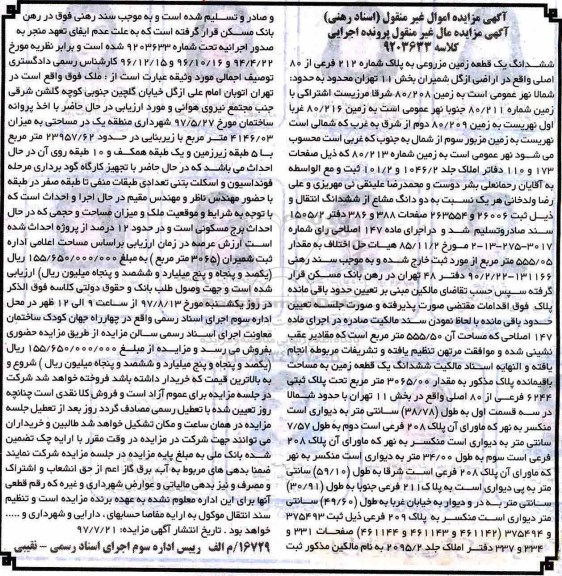 آگهی مزایده اموال غیر منقول (اسناد رهنی)
آگهی مزایده مال غیر منقول پرونده اجرایی
کلاسه ۹۲۰۳۶۳۳
ششدانگ یک قطعه زمین مزروعی به پلاک شماره ۲۱۲ فرعی از ۸۰
اصلی واقع در اراضی ازگل شمیران بخش ۱۱ تهران محدود به حدود:
شمالا نهر عمومی است به زمین ۸۰/۲۰۸ شرقا مرزیست اشتراکی با
زمین شماره ۸۰/۲۱۱ جنوبا نهر عمومی است به زمین ۸۰/۲۱۶ غربا
اول نهریست به زمین ۸۰/۲۰۹ دوم از شرق به غرب که شمالی است
نهریست به زمین مزبور سوم از شمال به جنوب که غربی است محسوب
می شود نهر عمومی است به زمین شماره ۸۰/۲۱۳ که ذیل صفحات
۱۷۳ و ۱۱۰ دفاتر املاک جلد ۱۰۴۶/۲ و ۱۰۱/۲ ثبت و مع الواسطه
به آقایان رحمانعلی بشر دوست و محمدرضا علینقی نی مهریزی و علی
رضا ولدخانی هر یک نسبت به دو دانگ مشاع از ششدانگ انتقال و
ذیل ثبت ۲۶۰۰۶ و ۲۶۳۵۵۴ صفحات ۳۸۸ و ۳۸۶ دفتر ۱۵۰۵/۲
سند صادروتسلیم شد و دراجرای ماده ۱۴۷ اصلاحی رای شماره
۳۰۱۷-۲۷۵-۱۳-۲ مورخ ۸۵/۱۱/۲ هیات حل اختلاف به مقدار
۵۵۵/۰۵ متر مربع از مورد ثبت خارج شده و به موجب سند رهنی
۱۳۱۱۶۶-۹۰/۲/۲۲ دفتر ۴۸ تهران در رهن بانک مسکن قرار
گرفته سپس حسب تقاضای مالکین مبنی بر تعیین حدود باقی مانده
پلاک فوق اقدامات مقتضی صورت پذیرفته و صورت جلسه تعیین
حدود باقی مانده با لحاظ نمودن سند مالکیت صادره در اجرای ماده
۱۴۷ اصلاحی که مساحت آن ۵۵۵/۵۰ متر مربع است که مقادیر عقب
نشینی شده و موافقت مرتهن تنظیم یافته و تشریفات مربوطه انجام
یافته و النهایه اسناد مالکیت ششدانگ یک قطعه زمین به مساحت
باقیمانده پلاک مذکور به مقدار ۳۰۶۵/۰۰ متر مربع تحت پلاک ثبتی
۶۲۴۴ فرعی از ۸۰ اصلی واقع در بخش ۱۱ تهران با حدود شمالا
در سه قسمت اول به طول (۳۸/۷۸) سانتی متر به دیواری است
منکسر به نهر که ماورای آن پلاک ۲۰۸ فرعی است دوم به طول ۷/۵۷
سانتی متر به دیواری است منکسر به نهر که ماورای آن پلاک ۲۰۸
فرعی است سوم به طول ۳۴/۰۰ متر به دیواری است منکسر به نهر
که ماورای آن پلاک ۲۰۸ فرعی است شرقا به طول (۵۹/۱۰) سانتی
متر به پی دیواری است به پلاک ۲۱۱ فرعی جنوبا به طول (۳۰/۹۱)
سانتی متر به در و دیوار به خیابان غربا به طول (۴۹/۶۰) سانتی
متر دیواری است منکسر به پلاک ۲۰۹ فرعی ذیل ثبت ۳۷۵۴۹۳
و ۳۷۵۴۹۴ (۴۶۱۱۴۲ و ۴۶۱۱۴۳ و ۴۶۱۱۴۴) صفحات ۳۳۱ و
۳۳۴ و ۳۳۷ دفتر املاک جلد ۲۰۹۵/۲ به نام مالکین مذکور ثبت
و صادر و تسلیم شده است و به موجب سند رهنی فوق در رهن
بانک مسکن قرار گرفته است که به علت عدم ایفای تعهد منجر به
صدور اجرائیه تحت شماره ۹۲۰۳۶۳۳ شده است و برابر نظریه مورخ
۹۴/۴/۲۲ و ۹۶/۱۰/۱۶ و ۹۶/۱۲/۱۵ کارشناس رسمی دادگستری
توصیف اجمالی مورد وثیقه عبارت است از : ملک فوق واقع است در
تهران اتوبان امام علی ازگل خیابان گلچین جنوبی کوچه گلشن شرقی
جنب مجتمع نیروی هوائی و مورد ارزیابی در حال حاضر با اخذ پروانه
ساختمان مورخ ۹۷/۵/۲۷ شهرداری منطقه یک در مساحتی به میزان
۴۱۴۶/۰۳ متر مربع با زیربنایی در حدود ۲۳۹۵۷/۶۲ متر مربع
با ۵ طبقه زیرزمین و یک طبقه همکف و ۱۰ طبقه روی آن در حال
احداث می باشد که در حال حاضر با تجهیز کارگاه گود برداری مرحله
فونداسیون و اسکلت بتنی تعدادی طبقات منفی تا طبقه صفر در طبقه
با حضور مهندس ناظر و مهندس مقیم در حال اجرا و احداث است که
با توجه به شرایط و موقعیت ملک و میزان مساحت و حجمی که در حال
احداث برج مسکونی است و در حدود ۱۲ درصد از پروژه احداث شده
است ارزش عرصه در زمان ارزیابی براساس مساحت اعلامی اداره
ثبت شمیران (۳۰۶۵ متر مربع ) به مبلغ ۱۵۵/۶۵۰/۰۰۰/۰۰۰ ریال
(یکصد و پنجاه و پنج میلیارد و ششصد و پنجاه میلیون ریال) ارزیابی
شده است و جهت وصول طلب بانک و حقوق دولتی کلاسه فوق الذکر
در روز یکشنبه مورخ ۹۷/۸/۱۳ از ساعت ۹ الی ۱۲ ظهر در محل
اداره سوم اجرای اسناد رسمی واقع در چهارراه جهان کودک ساختمان
معاونت اجرای اسناد رسمی سالن مزایده از طریق مزایده حضوری
بفروش می رسد و مزایده از مبلغ ۱۵۵/۶۵۰/۰۰۰/۰۰۰ ریال
(یکصد و پنجاه و پنج میلیارد و ششصد و پنجاه میلیون ریال ) شروع و
به بالاترین قیمت که خریدار داشته باشد فروخته خواهد شد شرکت
در جلسه مزایده برای عموم آزاد است و فروش کلا نقدی است چنانچه
روز تعیین شده با تعطیل رسمی مصادف گردد روز بعد از تعطیل جلسه
مزایده در همان ساعت و مکان تشکیل خواهد شد طالبین و خریداران
می توانند جهت شرکت در مزایده در وقت مقرر با ارایه چک تضمین
شده بانک ملی به مبلغ پایه مزایده در جلسه مزایده شرکت نمایند
ضمنا بدهی های مربوط به آب، برق گاز اعم از حق انشعاب و اشتراک
و مصرف و نیز بدهی مالیاتی و عوارض شهرداری و غیره که رقم قطعی
آنها برای این اداره معلوم نشده به عهده برنده مزایده است و تنظیم
سند انتقال موکول به ارایه مفاصا حسابهای ، دارایی و شهرداری و .....
خواهد بود . تاریخ انتشار آگهی مزایده: ۹۷/۷/۲۱
۱۶۷۲۹/م الف رییس اداره سوم اجرای اسناد رسمی - نقیبی